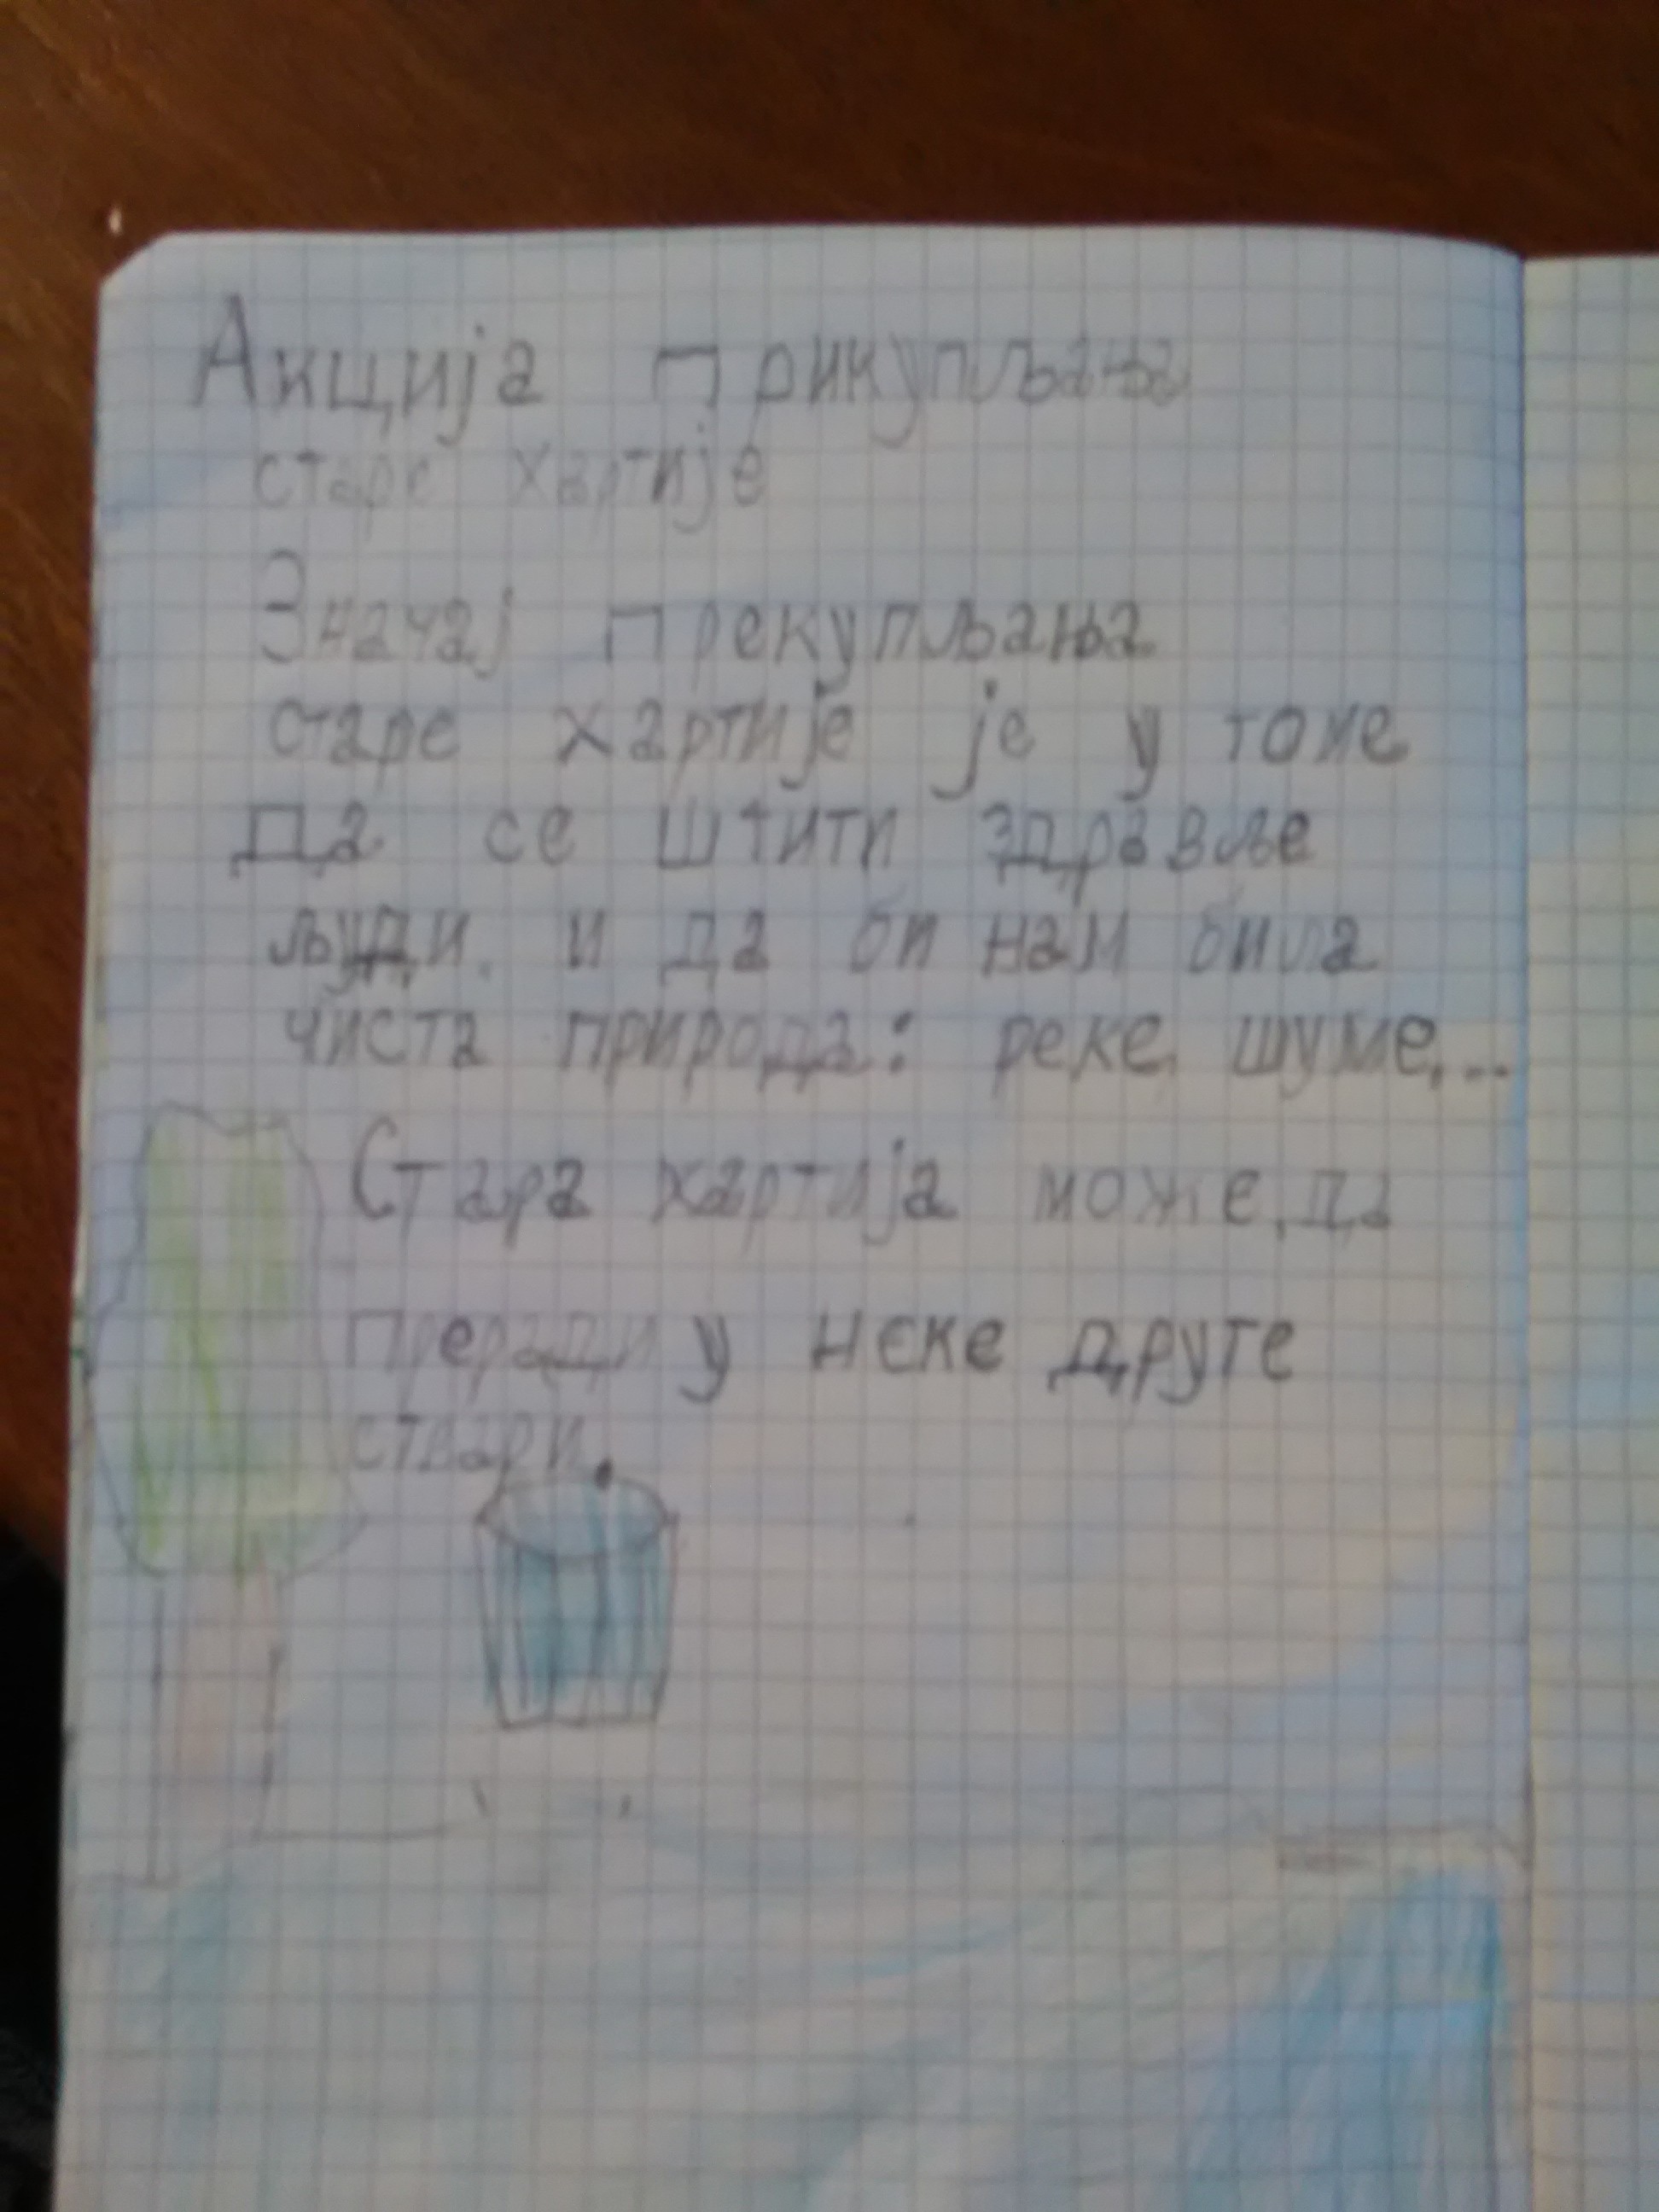 Акција прикупљања
старе хартије
Значај прекупљања
старе хартије је у томе
да се штити здравље
људи. и да би нам била
чиста природа: реке, шуме,...
Стара хартија може, да
преради у неке друге
ствари.